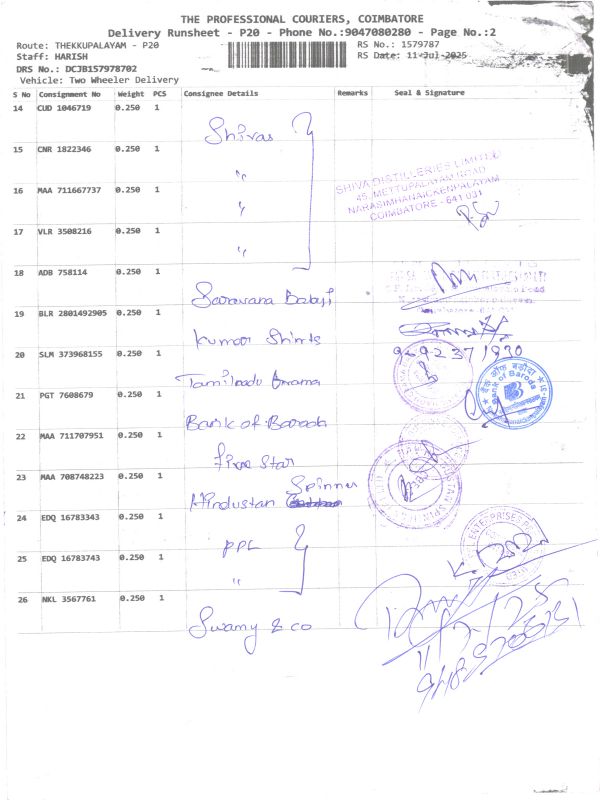 THE PROFESSIONAL COURIERS, COIMBATORE
Delivery Runsheet - P20 - Phone No.:9047080280 - Page No.:2
Route: THEKKUPALAYAM - P20
RS No.: 1579787
Staff: HARISH
RS Date: 11-Jul-2025
DRS No.: DCJB157978702
Vehicle: Two Wheeler Delivery
S No Consignment No Weight PCS Consignee Details Remarks Seal & Signature
14 CUD 1046719 0.250 1
Shivas
15 CNR 1822346 0.250 1
"
SHIVA DISTILLERIES LIMITED
16 MAA 711667737 0.250 1
45, METTUPALAYAM ROAD
NARASIMHANAICKENPALAYAM
COIMBATORE - 641 031
"
17 VLR 3508216 0.250 1
"
18 ADB 758114 0.250 1
Saravana Balaji
19 BLR 2801492905 0.250 1
Kumar Shirts
20 SLM 373968155 0.250 1
Tamilnadu
21 PGT 7608679 0.250 1
Bank of Baroda
बैंक ऑफ़ बड़ौदा
Bank of Baroda
22 MAA 711707951 0.250 1
Five Star
23 MAA 708748223 0.250 1
Hindustan Spinner
24 EDQ 16783343 0.250 1
PPL
25 EDQ 16783743 0.250 1
"
26 NKL 3567761 0.250 1
Swamy & co